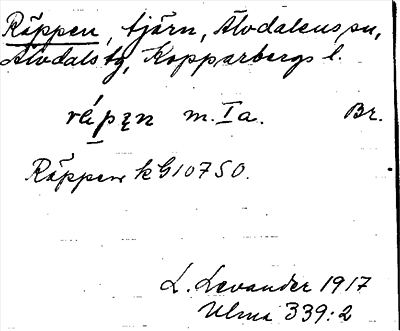 Räppen, tjärn, Älvdalens sn,
Älvdals tg, Kopparbergs l.
m. Ia. Br.
Räppen k G10750.
L. Levander 1917
Ulma 339:2